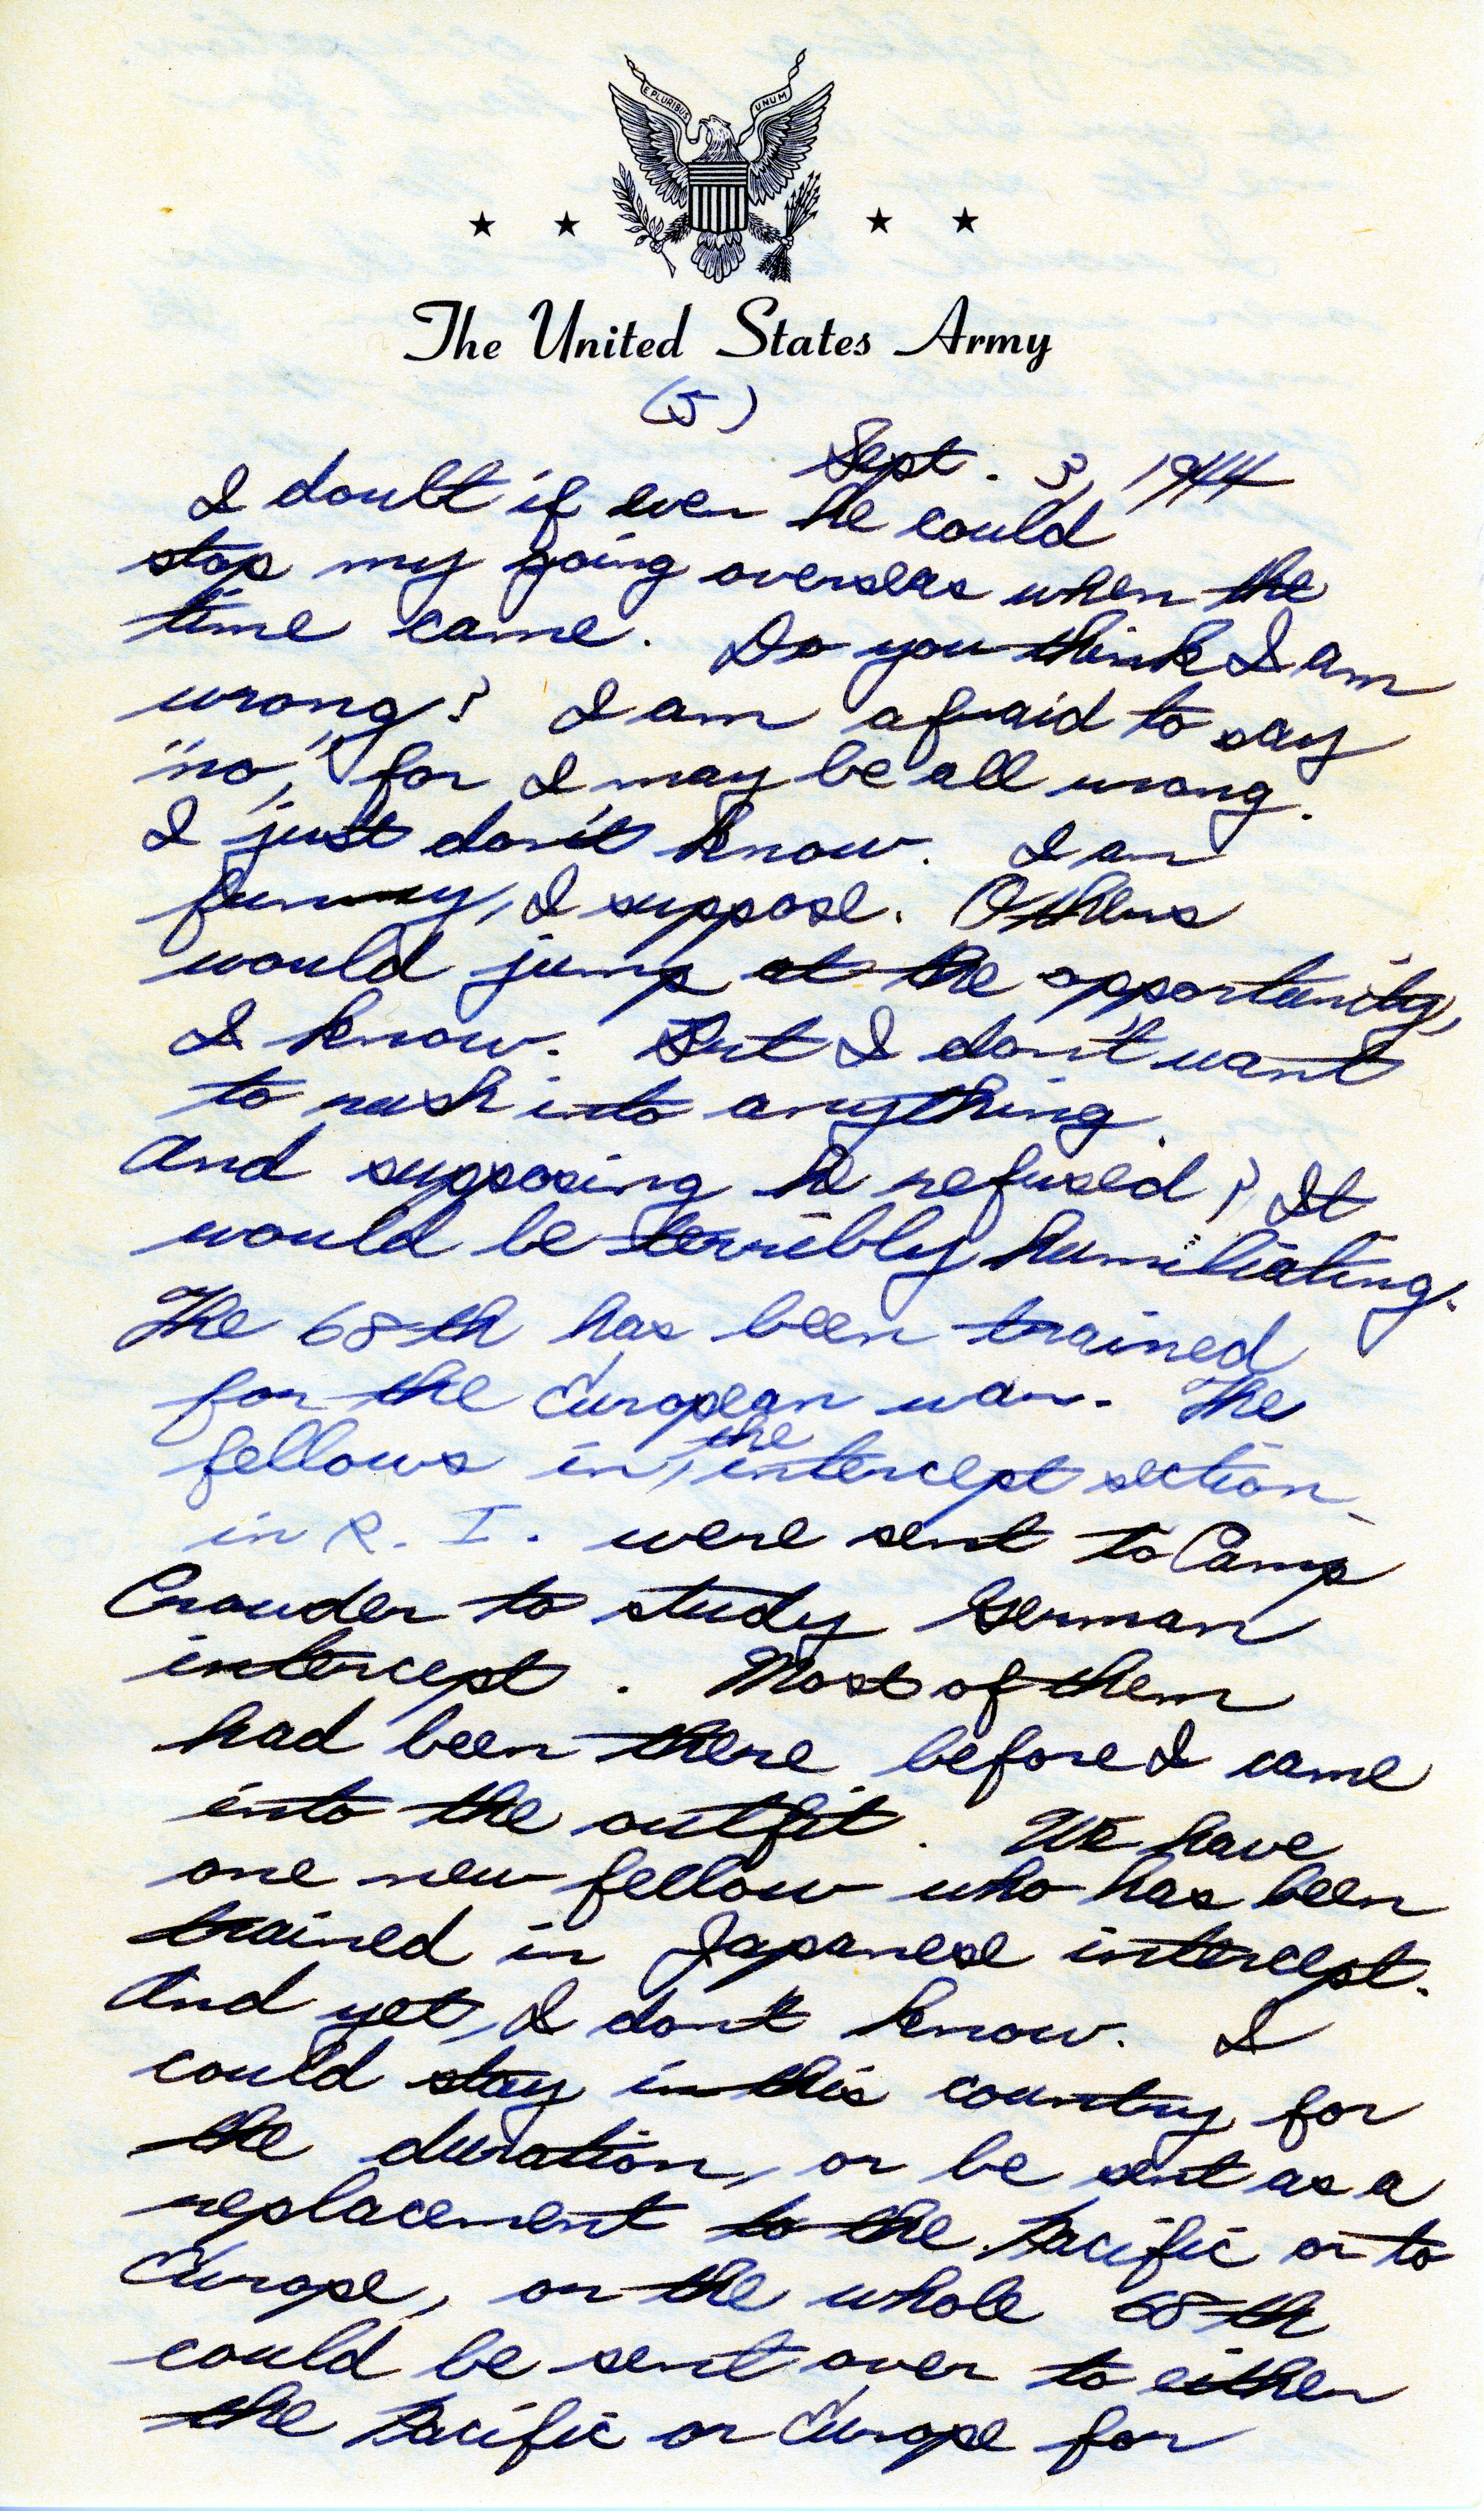 E PLURIBUS UNUM
The United States Army
(5)
Sept. 3, 1944
I doubt if even he could
stop my going overseas when the
time came. Do you think I am
wrong? I am afraid to say
"no," for I may be all wrong.
I just don't know. I am
funny, I suppose. Others
would jump at the opportunity,
I know. But I don't want
to rush into anything.
And supposing he refused? It
would be terribly humiliating.
The 68th has been trained
for the European war. The
fellows in the intercept section
in R. I. were sent to Camp
Crowder to study German
intercept. Most of them
had been there before I came
into the outfit. We have
one new fellow who has been
trained in Japanese intercept.
And yet, I don't know. I
could stay in this country for
the duration, or be sent as a
replacement to the Pacific or to
Europe, or the whole 68th
could be sent over to either
the Pacific or Europe for